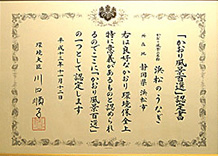 「かおり風景百選」認定書
かおり風景の名称
浜松のうなぎ
所在地
静岡県浜松市
右は良好なかおり環境保全上
特に意義があるものと認められ
るのでここに「かおり風景百選」
の一つとして認定します
平成十三年十一月十二日
環境大臣 川口順子